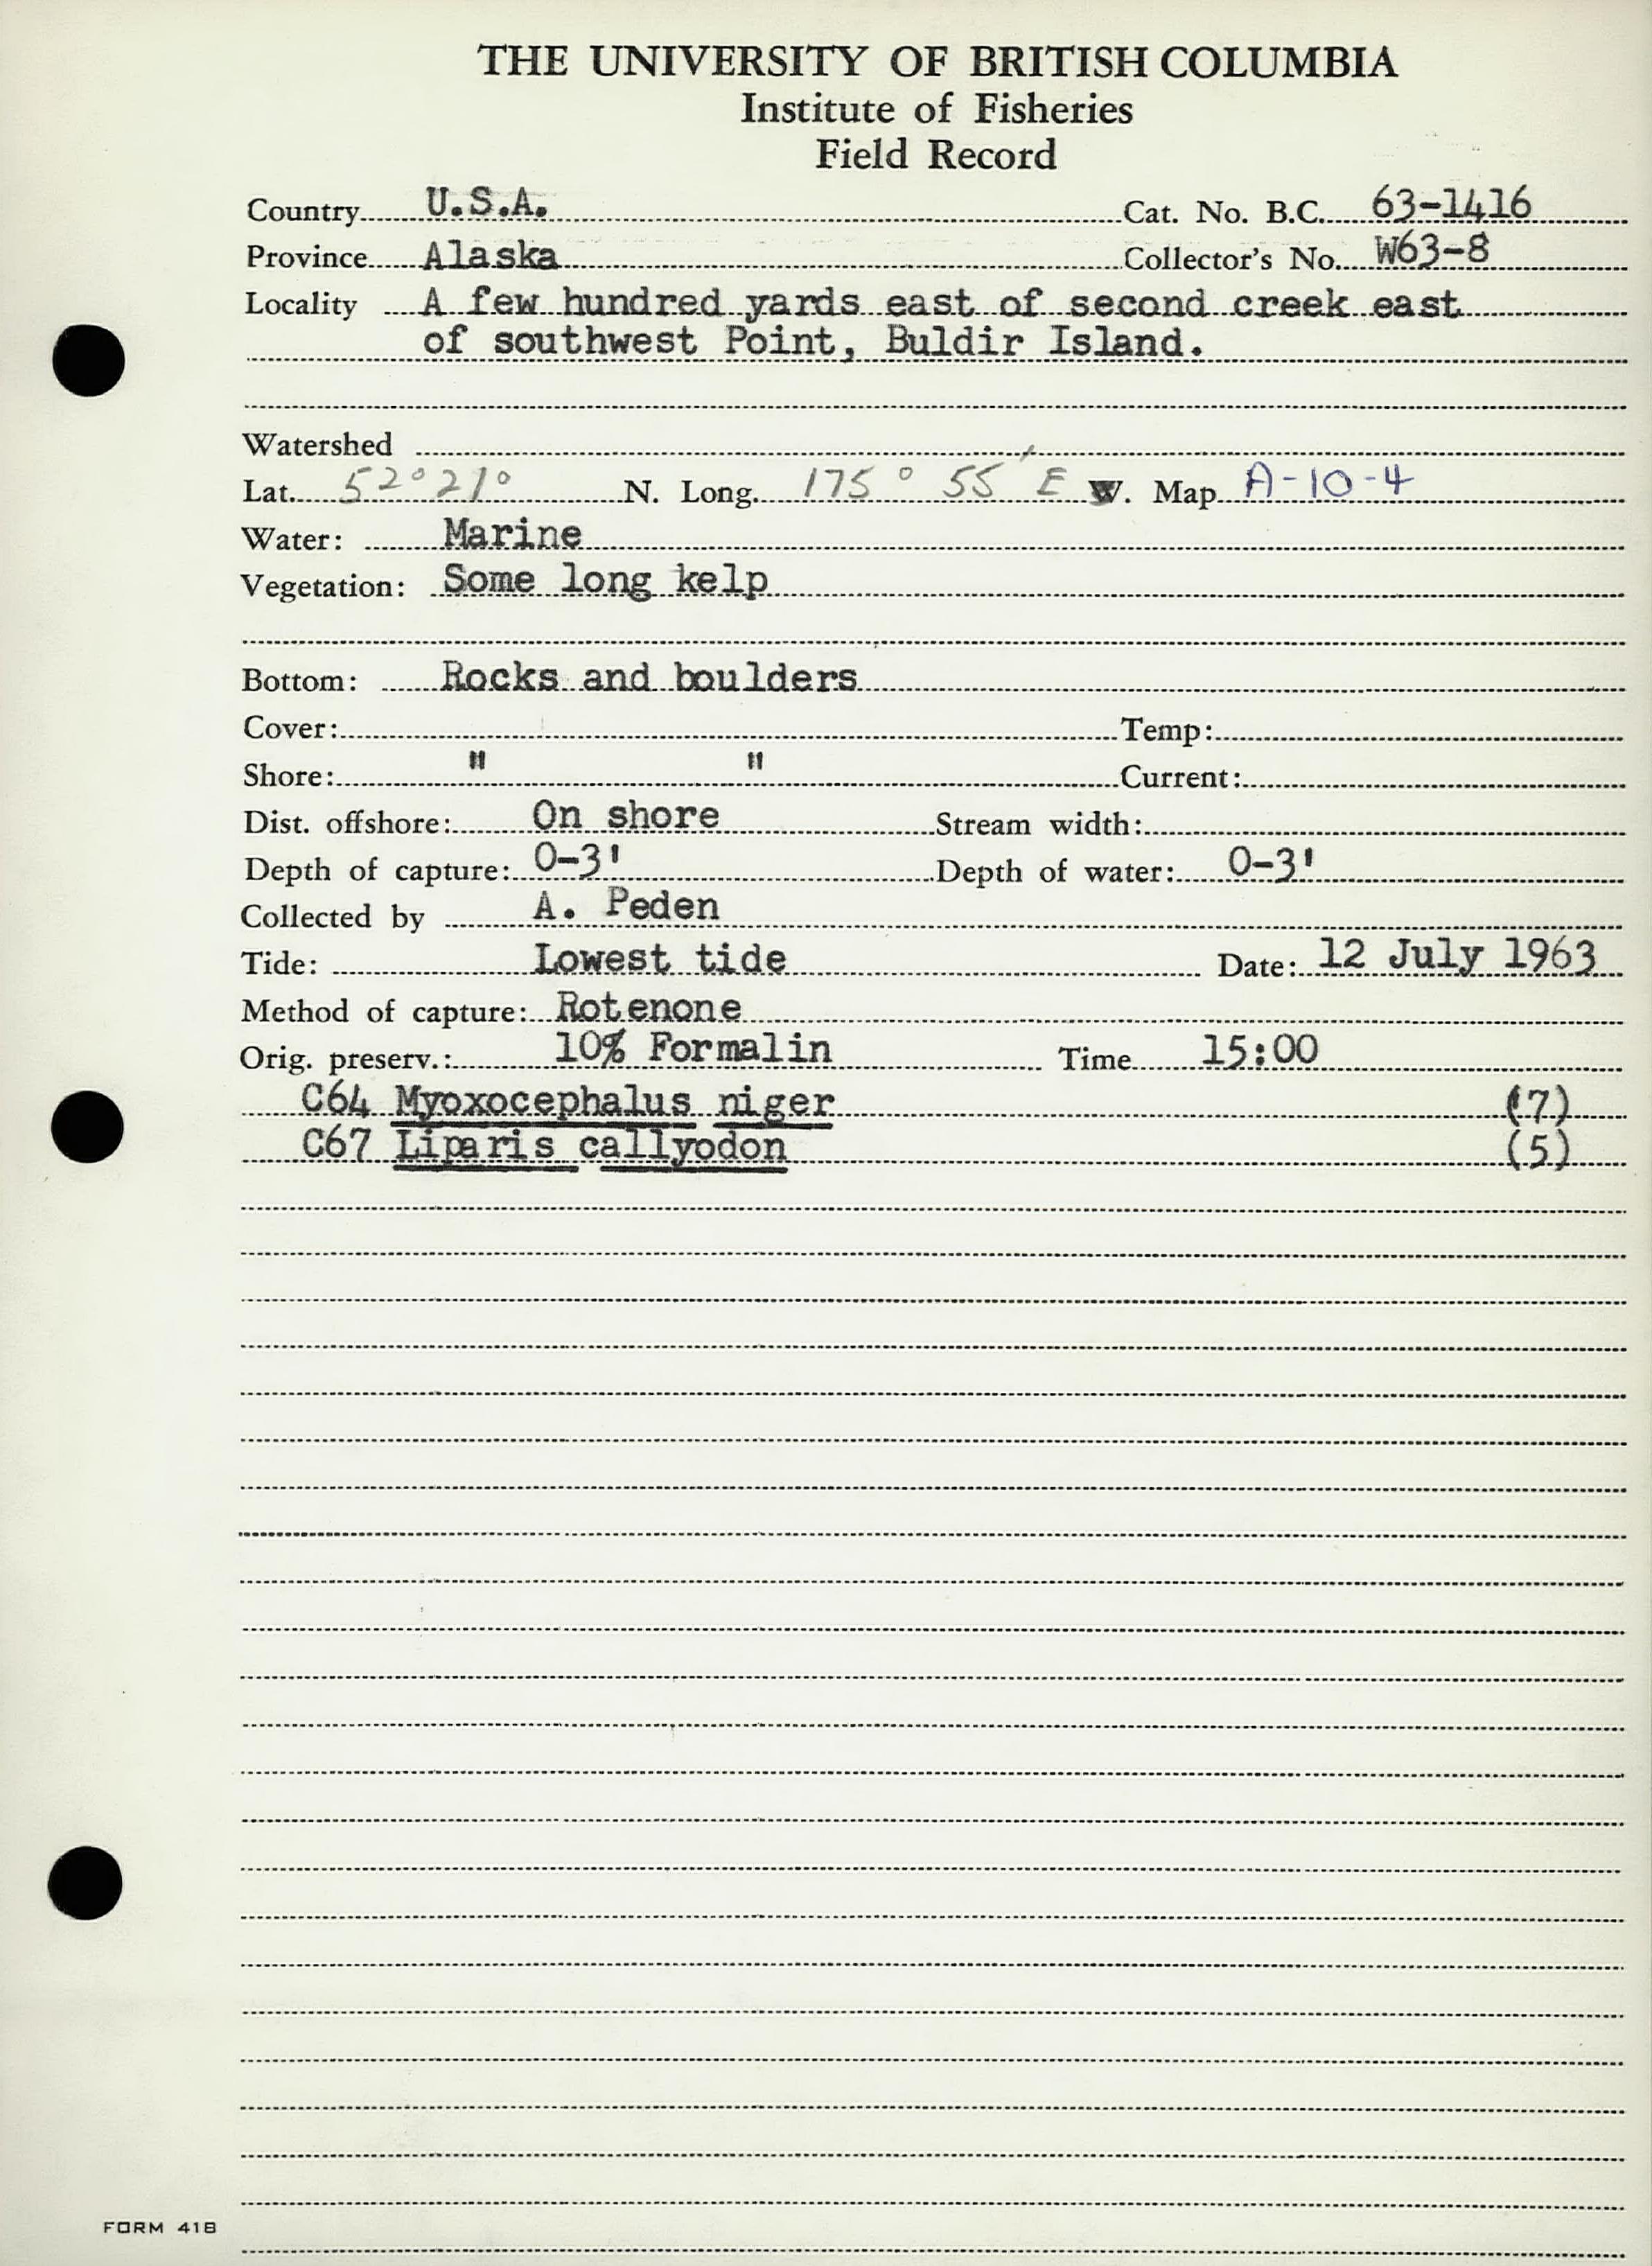 THE UNIVERSITY OF BRITISH COLUMBIA
Institute of Fisheries
Field Record
Country U.S.A. Cat. No. B.C. 63-1416
Province Alaska Collector's No. W63-8
Locality A few hundred yards east of second creek east
of southwest Point, Buldir Island.
Watershed
Lat. 52°21° N. Long. 175° 55' E W. Map A-10-4
Water: Marine
Vegetation: Some long kelp
Bottom: Rocks and boulders
Cover: Temp:
Shore: " " Current:
Dist. offshore: On shore Stream width:
Depth of capture: 0-3' Depth of water: 0-3'
Collected by A. Peden
Tide: Lowest tide Date: 12 July 1963
Method of capture: Rotenone
Orig. preserv.: 10% Formalin Time 15:00
C64 Myoxocephalus niger (7)
C67 Liparis callyodon (5)
FORM 41B